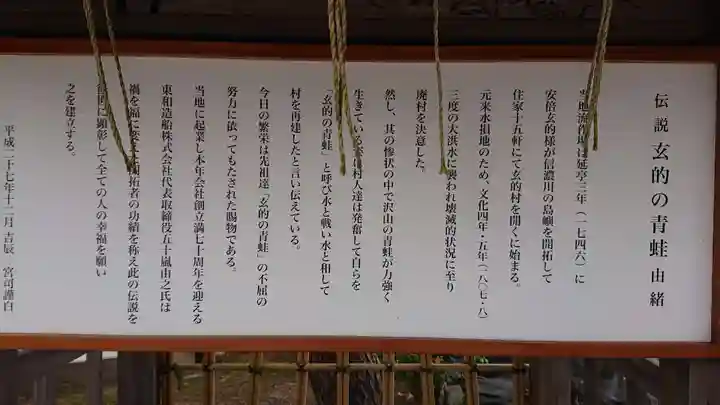 伝説 玄的の青蛙 由緒
当地流作場は延亭三年(一七四六)に
安倍玄的様が信濃川の島嶼を開拓して
住家十五軒にて玄的村を開くに始まる。
元来水損地のため、文化四年・五年(一八〇七・八)
三度の大洪水に襲われ壊滅的状況に至り
廃村を決意した。
然し、其の惨状の中で沢山の青蛙が力強く
生きている 村人達は発奮して自らを
「玄的の青蛙」と呼び水と戦い水と和して
村を再建したと言い伝えている。
今日の繁栄は先祖達「玄的の青蛙」の不屈の
努力に依ってもたされた賜物である。
当地に起業し本年会社創立満七十周年を迎える
東和造船株式会社代表取締役五十嵐由之氏は
禍を福に変え 拓者の功績を称え此の伝説を
に顕彰して全ての人の幸福を願い
之を建立する。
平成二十七年十二月吉辰 宮司謹白